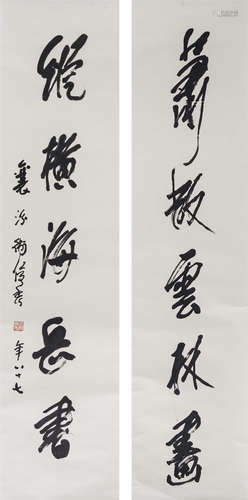 蕭散雲林畫
縱橫海岳書
年八十七